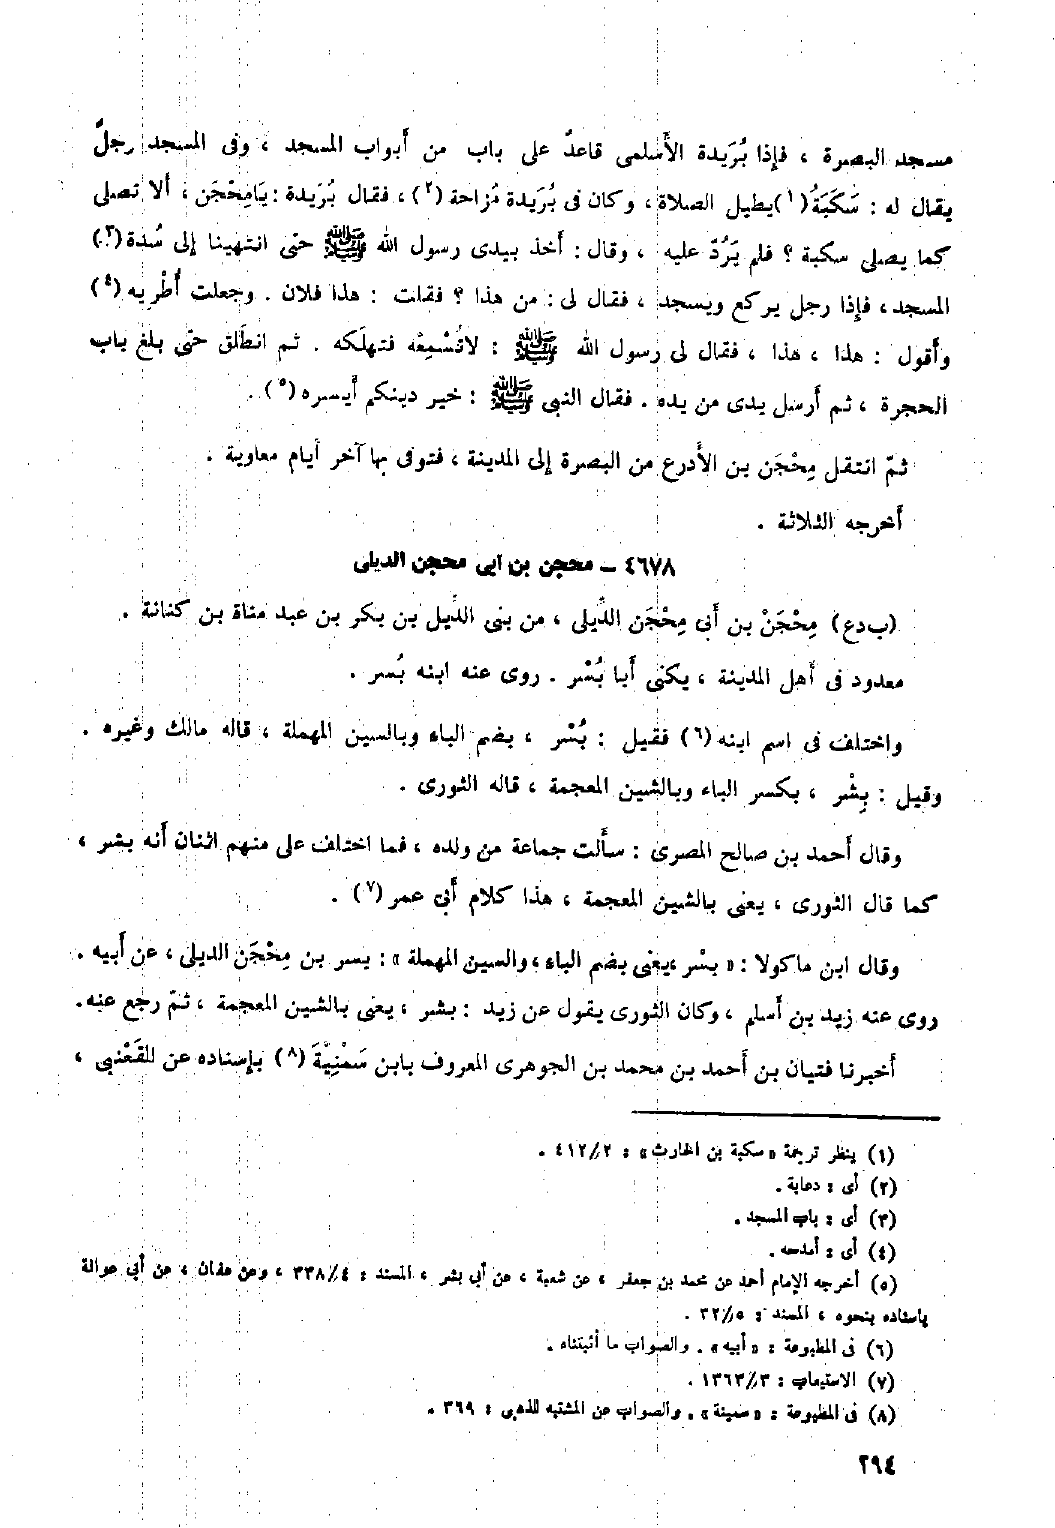 مسجد البصرة ، فإذا بُرَيدة الأَسلمى قاعدٌ على باب من أَبواب المسجد ، وفى المسجد رجلٌ
يقال له : سَكَبَةُ (١) يطيل الصلاة ، وكان فى بُرَيدة مُزاحة (٢) ، فقال بُرَيدة : يَامِحْجَن ، ألا تصلى
كما يصلى سكبة ؟ فلم يَرُدّ عليه ، وقال : أَخذ بيدى رسول الله ﷺ حتى انتهينا إلى سُدة (٣)
المسجد ، فإِذا رجل يركع ويسجد ، فقال لى : من هذا ؟ فقلت : هذا فلان . وجعلت أُطْرِيه (٤)
وأَقول : هذا ، هذا ، فقال لى رسول الله ﷺ : لاتُسْمِعْه فتهلَكه . ثم انطلق حتى بلغ باب
الحجرة ، ثم أَرسل يدى من يده . فقال النبى ﷺ : خير دينكم أَيسره (٥) .
ثمّ انتقل مِحْجَن بن الأَدرع من البصرة إلى المدينة ، فتوفى بها آخر أيام معاوية .
أَخرجه الثلاثة .
٤٦٧٨ – محجن بن أبى محجن الديلى
(ب د ع) مِحْجَنْ بن أَبى مِحْجَن الدِّيلى ، من بنى الدِّيل بن بكر بن عبد مناة بن كنانة .
معدود فى أَهل المدينة ، يكنى أَبا بُسْر . روى عنه ابنه بُسر .
واختلف فى اسم ابنه (٦) فقيل : بُسْر ، بضم الباء وبالسين المهملة ، قاله مالك وغيره .
وقيل : بِشْر ، بكسر الباء وبالشين المعجمة ، قاله الثورى .
وقال أَحمد بن صالح المصرى : سأَلت جماعة من ولده ، فما اختلف على منهم اثنان أَنه بشر ،
كما قال الثورى ، يعنى بالشين المعجمة ، هذا كلام أَبى عمر (٧) .
وقال ابن ماكولا : « بسْر ، يعنى بضم الباء ، والسين المهملة » : بسر بن مِحْجَن الديلى ، عن أَبيه .
روى عنه زيد بن أَسلم ، وكان الثورى يقول عن زيد : بشر ، يعنى بالشين المعجمة ، ثمّ رجع عنه .
أَخبرنا فتيان بن أَحمد بن محمد بن الجوهرى المعروف بابن سَمْنِيَّةَ (٨) بإِسناده عن القَعْنَبى ،
(١) ينظر ترجمة « سكبة بن الحارث » : ٢/٤١٢ .
(٢) أى : دعابة .
(٣) أى : باب المسجد .
(٤) أى : أمدحه .
(٥) أخرجه الإمام أحمد عن محمد بن جعفر ، عن شعبة ، عن أبى بشر ، المسند : ٤/٣٣٨ ، وعن عفان ، عن أبى عوانة
بإسناده بنحوه ، المسند : ٥/٣٢ .
(٦) فى المطبوعة : « أبيه » . والصواب ما أثبتناه .
(٧) الاستيعاب : ٣/١٣٦٣ .
(٨) فى المطبوعة : « سمينة » . والصواب عن المشتبه للذهبى : ٣٦٩ .
٢٩٤